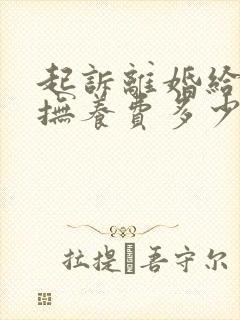 起訴離婚給
撫養費多少
拉提·吾守尔